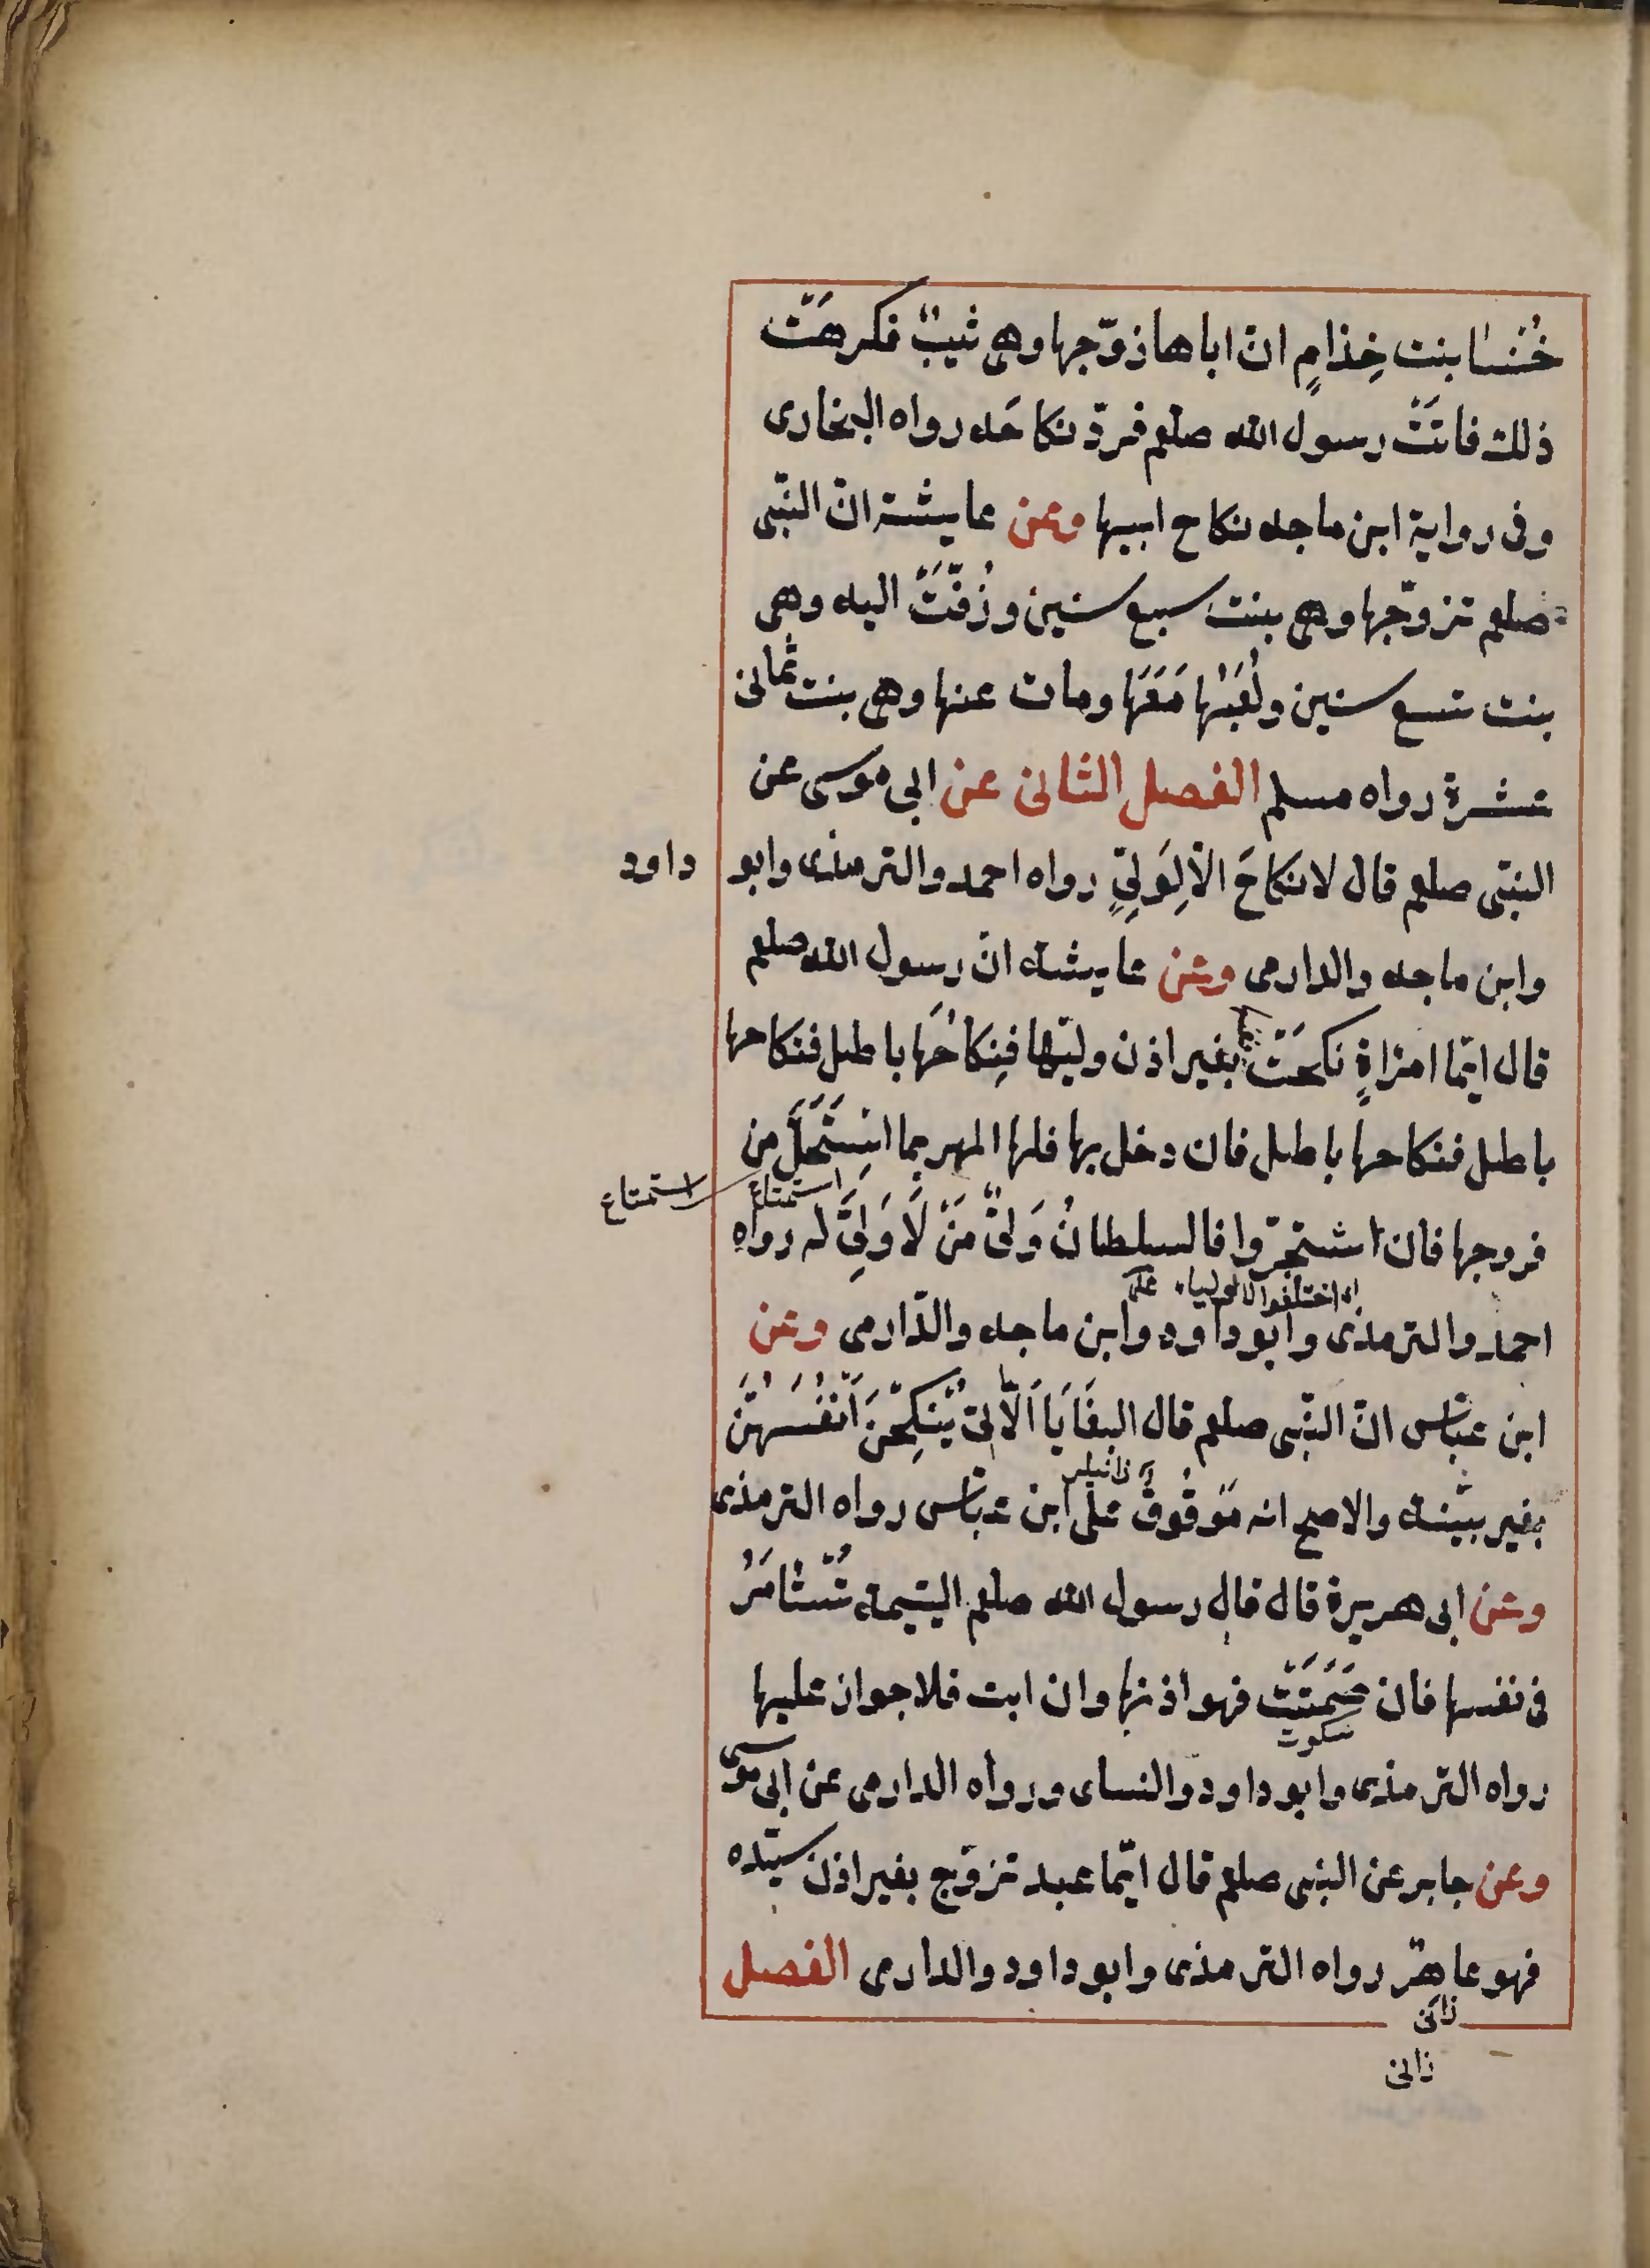 خُنسا بنت خِذامٍ انّ اباها زوّجها وهى ثيبٌ فكرهَتْ
ذلك فاتَتْ رسول الله صلعم فردّ نكاحَه رواه البخارى
وفى رواية ابن ماجه نكاح ابيها وعن عايشة انّ النّبى
صلعم تزوّجها وهى بنت سبع سنين وزُفّتْ اليه وهى
بنت تسع سنين ولُعَبُها مَعَها ومات عنها وهى بنت ثمانى
عشرة رواه مسلم الفصل الثانى عن ابى موسى عن
النبّى صلعم قال لا نكاحَ الّا لِوَلِىٍّ رواه احمد والترمذى وابو داود
وابن ماجه والدارمى وعن عايشه انّ رسول الله صلعم
قال ايّما امراةٍ نكحَتْ بغير اذن وليّها فنِكاحُها باطل فنكاحها
باطل فنكاحها باطل فان دخل بها فلها المهر بما استَحَلَّ من
استمتاع
استمتاع
فروجها فان اشتجرّوا فالسلطانُ وَلىُّ مَنْ لَا وَلِىَّ له رواه
اى اختلفوا الاولياء
احمد والترمذى وابو داود وابن ماجه والدّارمى وعن
ابن عبّاس انّ النّبى صلعم قال البغَايَا اَلّاتى يُنكِحْنَ اَنفُسَهُنَّ
زانيلر
بغير بيّنه والاصح انه مَوقُوفٌ على ابن عبّاس رواه الترمذى
وعن ابى هريرة قال قال رسول الله صلعم اليتيمه تُستْامَرُ
فى نفسها فان صَمَتَتْ فهو اذنها وان ابت فلا جواز عليها
سكوت
رواه الترمذى وابو داود والنساى ورواه الدارمى عن ابى موسى
وعن جابر عن النبى صلعم قال ايّما عبد تزوّج بغير اذن سيّده
فهو عاهرٌ رواه الترمذى وابو داود والدارمى الفصل
زانى
زانى